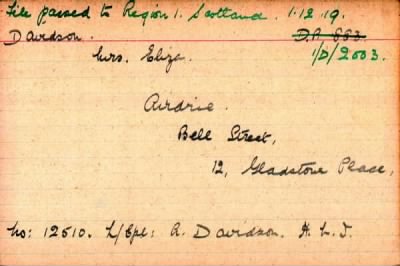 File passed to Region 1. Scotland. 1.12.19.
Davidson. D.A. 663.
Mrs. Eliza. 1/D/2003.
Airdrie.
Bell Street,
12, Gladstone Place,
No: 12510. L/Cpl: A. Davidson. H.L.I.